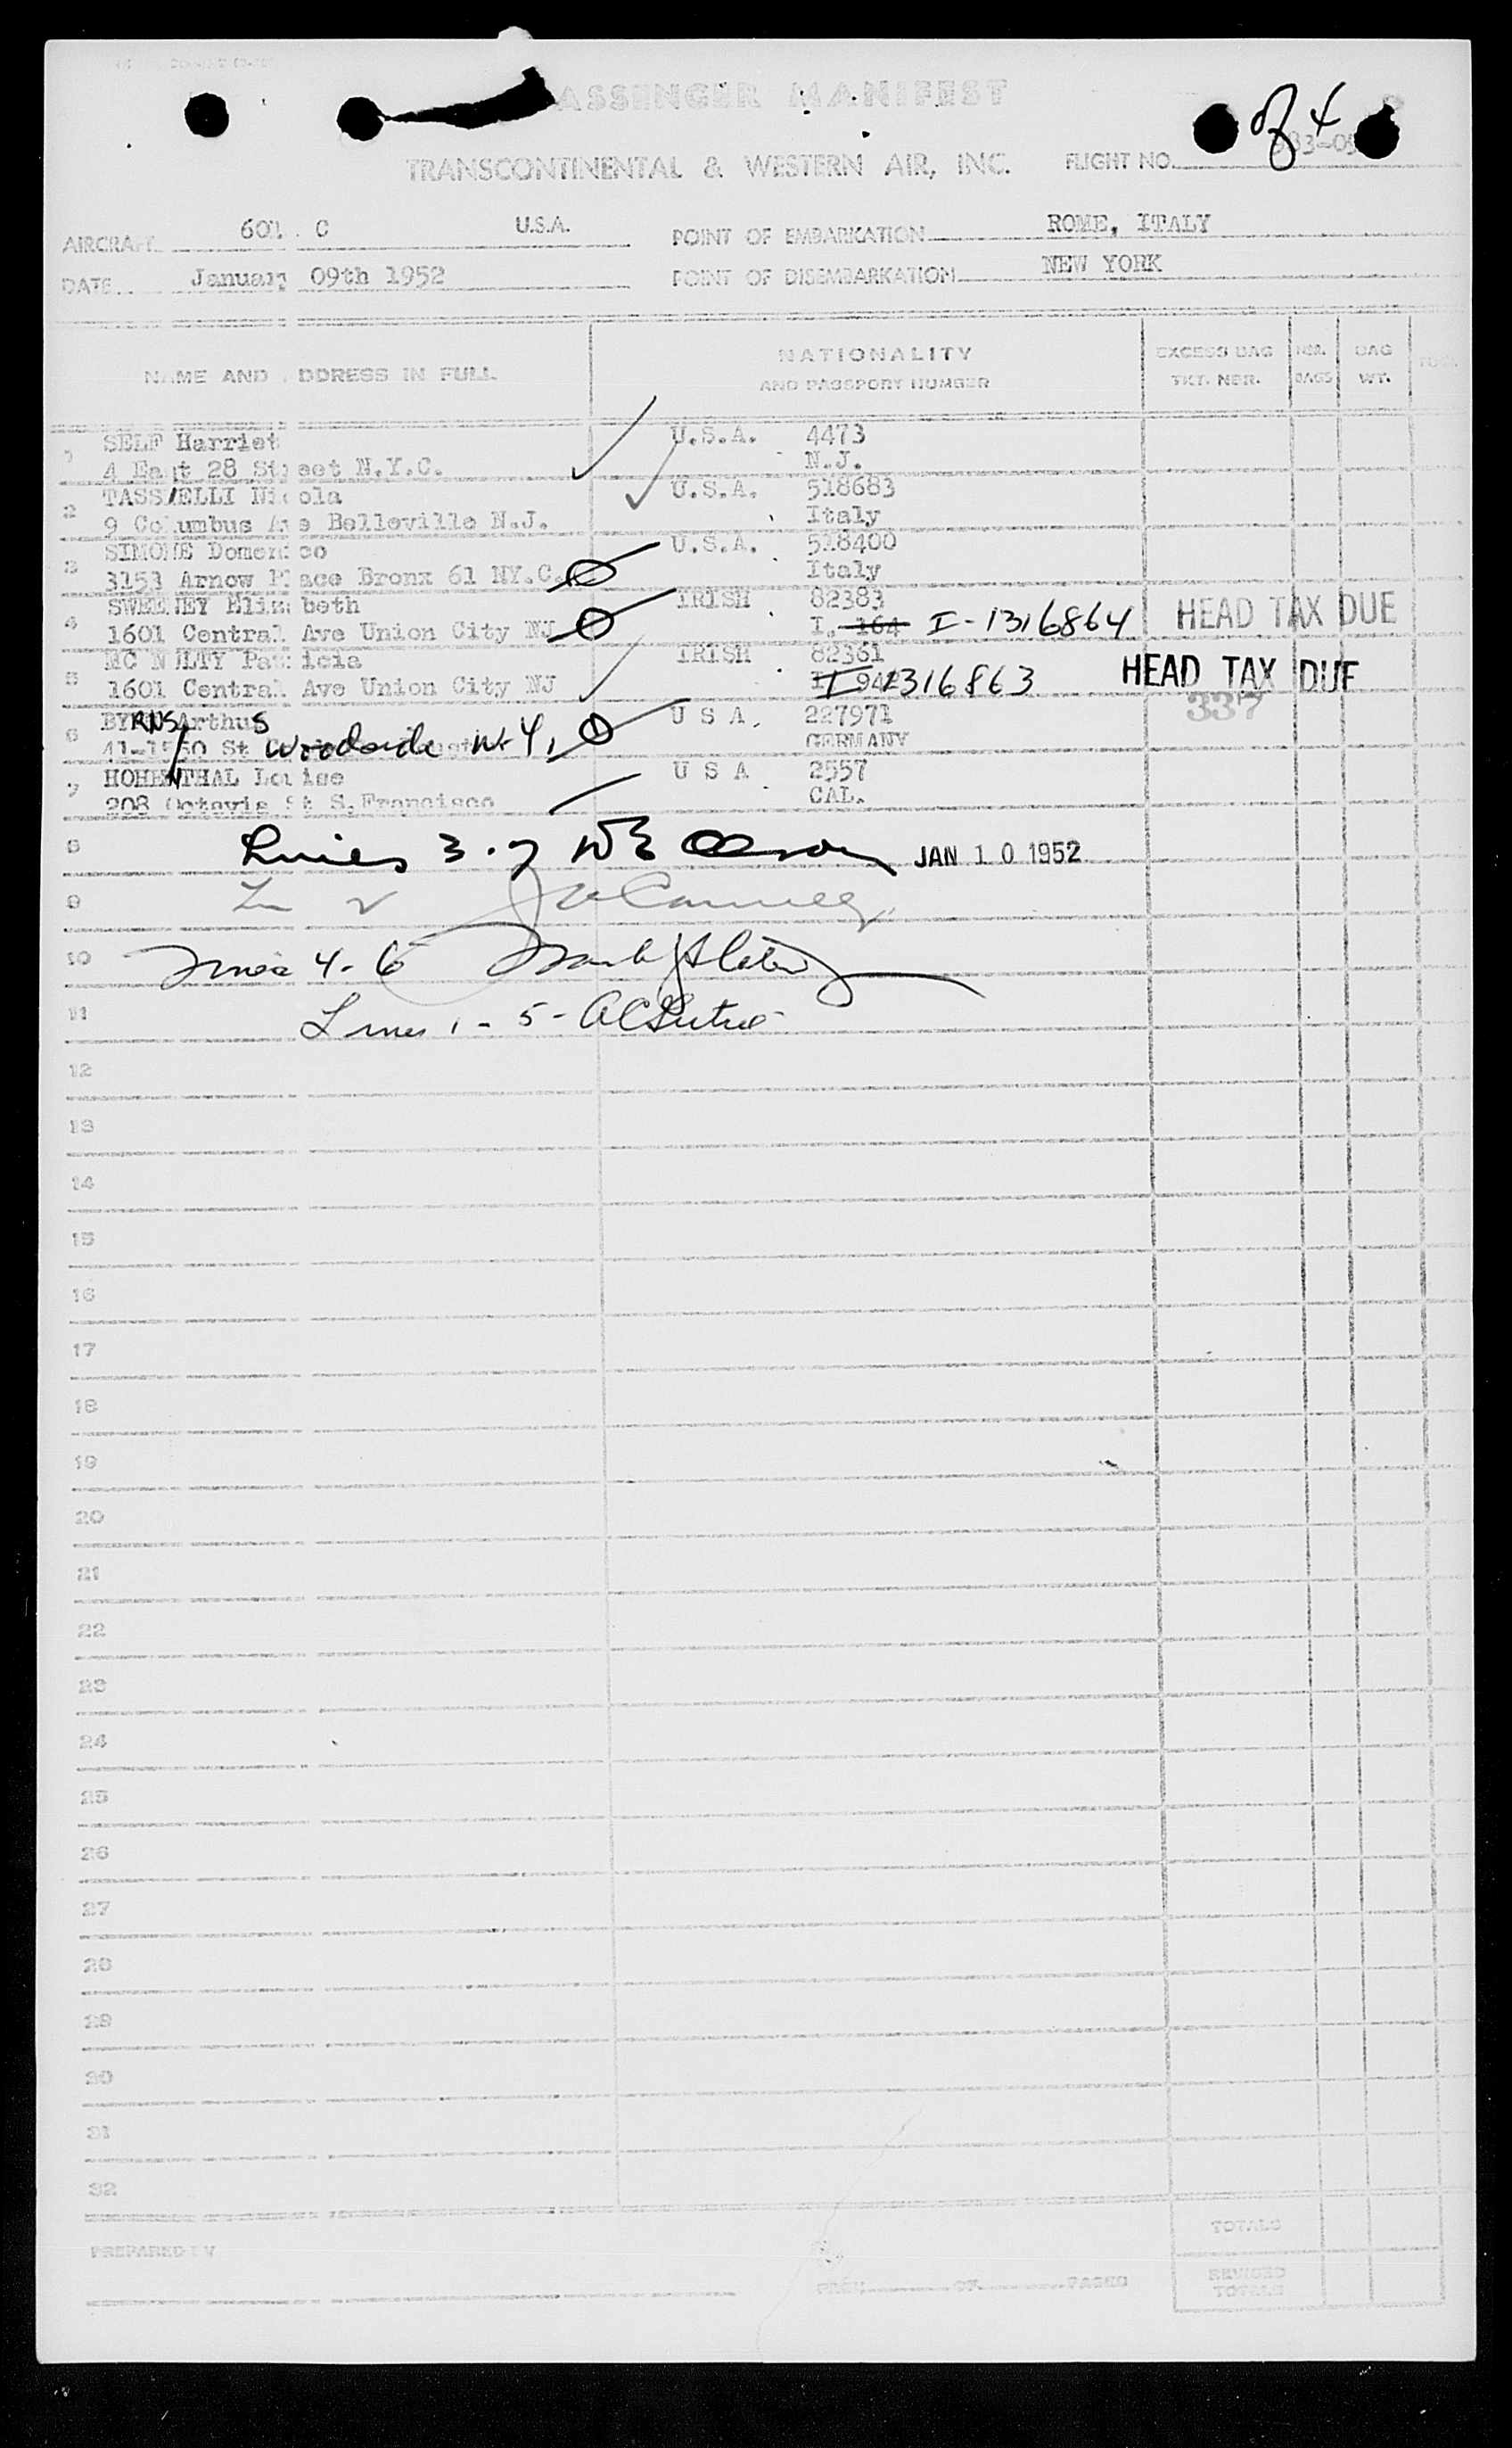 PASSENGER MANIFEST
of 4
TRANSCONTINENTAL & WESTERN AIR, INC. FLIGHT NO.
AIRCRAFT 601 C U.S.A. POINT OF EMBARKATION ROME, ITALY
DATE January 09th 1952 POINT OF DISEMBARKATION NEW YORK
NAME AND ADDRESS IN FULL NATIONALITY AND PASSPORT NUMBER EXCESS BAG TKT. NBR. BAGS BAG WT.
1 SELF Harriet U.S.A. 4473
4 East 28 Street N.Y.C. N.J.
2 TASSIELLI Nicola U.S.A. 518683
9 Columbus Ave Belleville N.J. Italy
3 SIMONE Domenico U.S.A. 518400
3153 Arnow Place Bronx 61 NY.C. Italy
4 SWEENEY Elizabeth IRISH 82383
1601 Central Ave Union City NJ I. 164 I-1316864 HEAD TAX DUE
5 MC NULTY Patricia IRISH 82361
1601 Central Ave Union City NJ I 1316863 HEAD TAX DUE
337
6 BYRNS Arthur S U S A. 227971
St Woodside N.Y. GERMANY
7 HOHENTHAL Louise U S A 2557
208 Octavia St S. Francisco CAL.
8 Lines 3.7 JAN 10 1952
9
10 Lines 4-6
11 Lines 1-5-
12
13
14
15
16
17
18
19
20
21
22
23
24
25
26
27
28
29
30
31
32
TOTALS
PREPARED BY
PAGE OF PAGES REVISED TOTALS